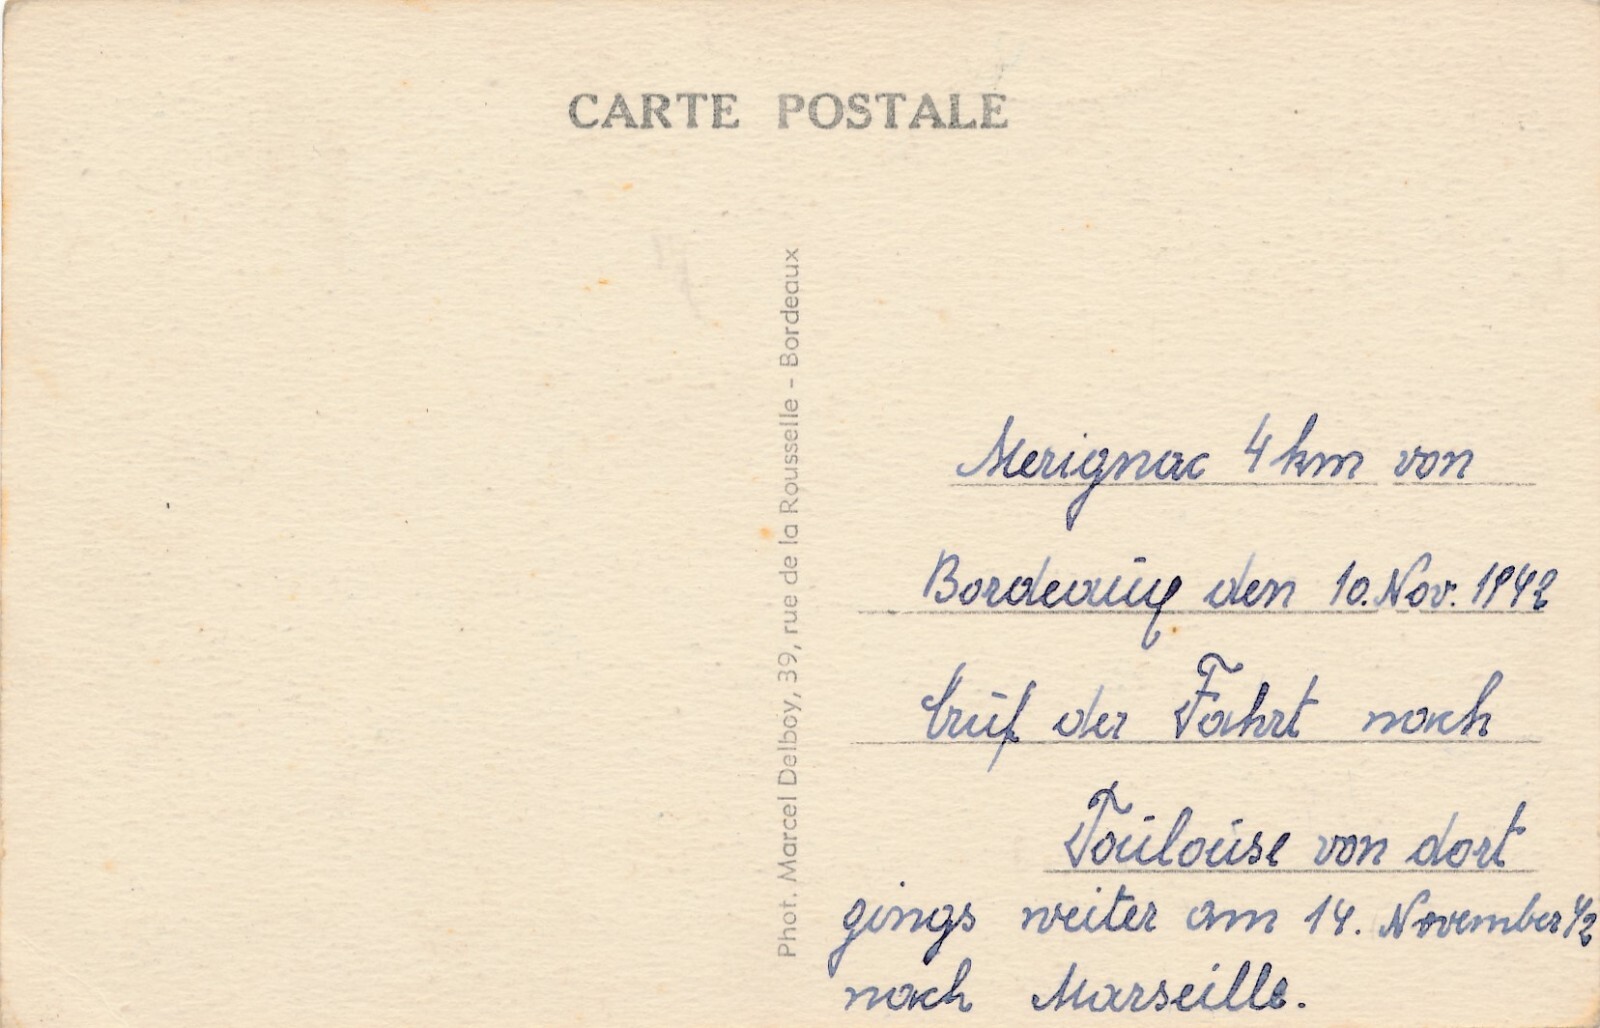 CARTE POSTALE
Phot. Marcel Delboy, 39, rue de la Rousselle - Bordeaux
Merignac 4 km von
Bordeaux den 10. Nov. 1942
Auf der Fahrt nach
Toulouse von dort
gings weiter am 14. November 42
nach Marseille.